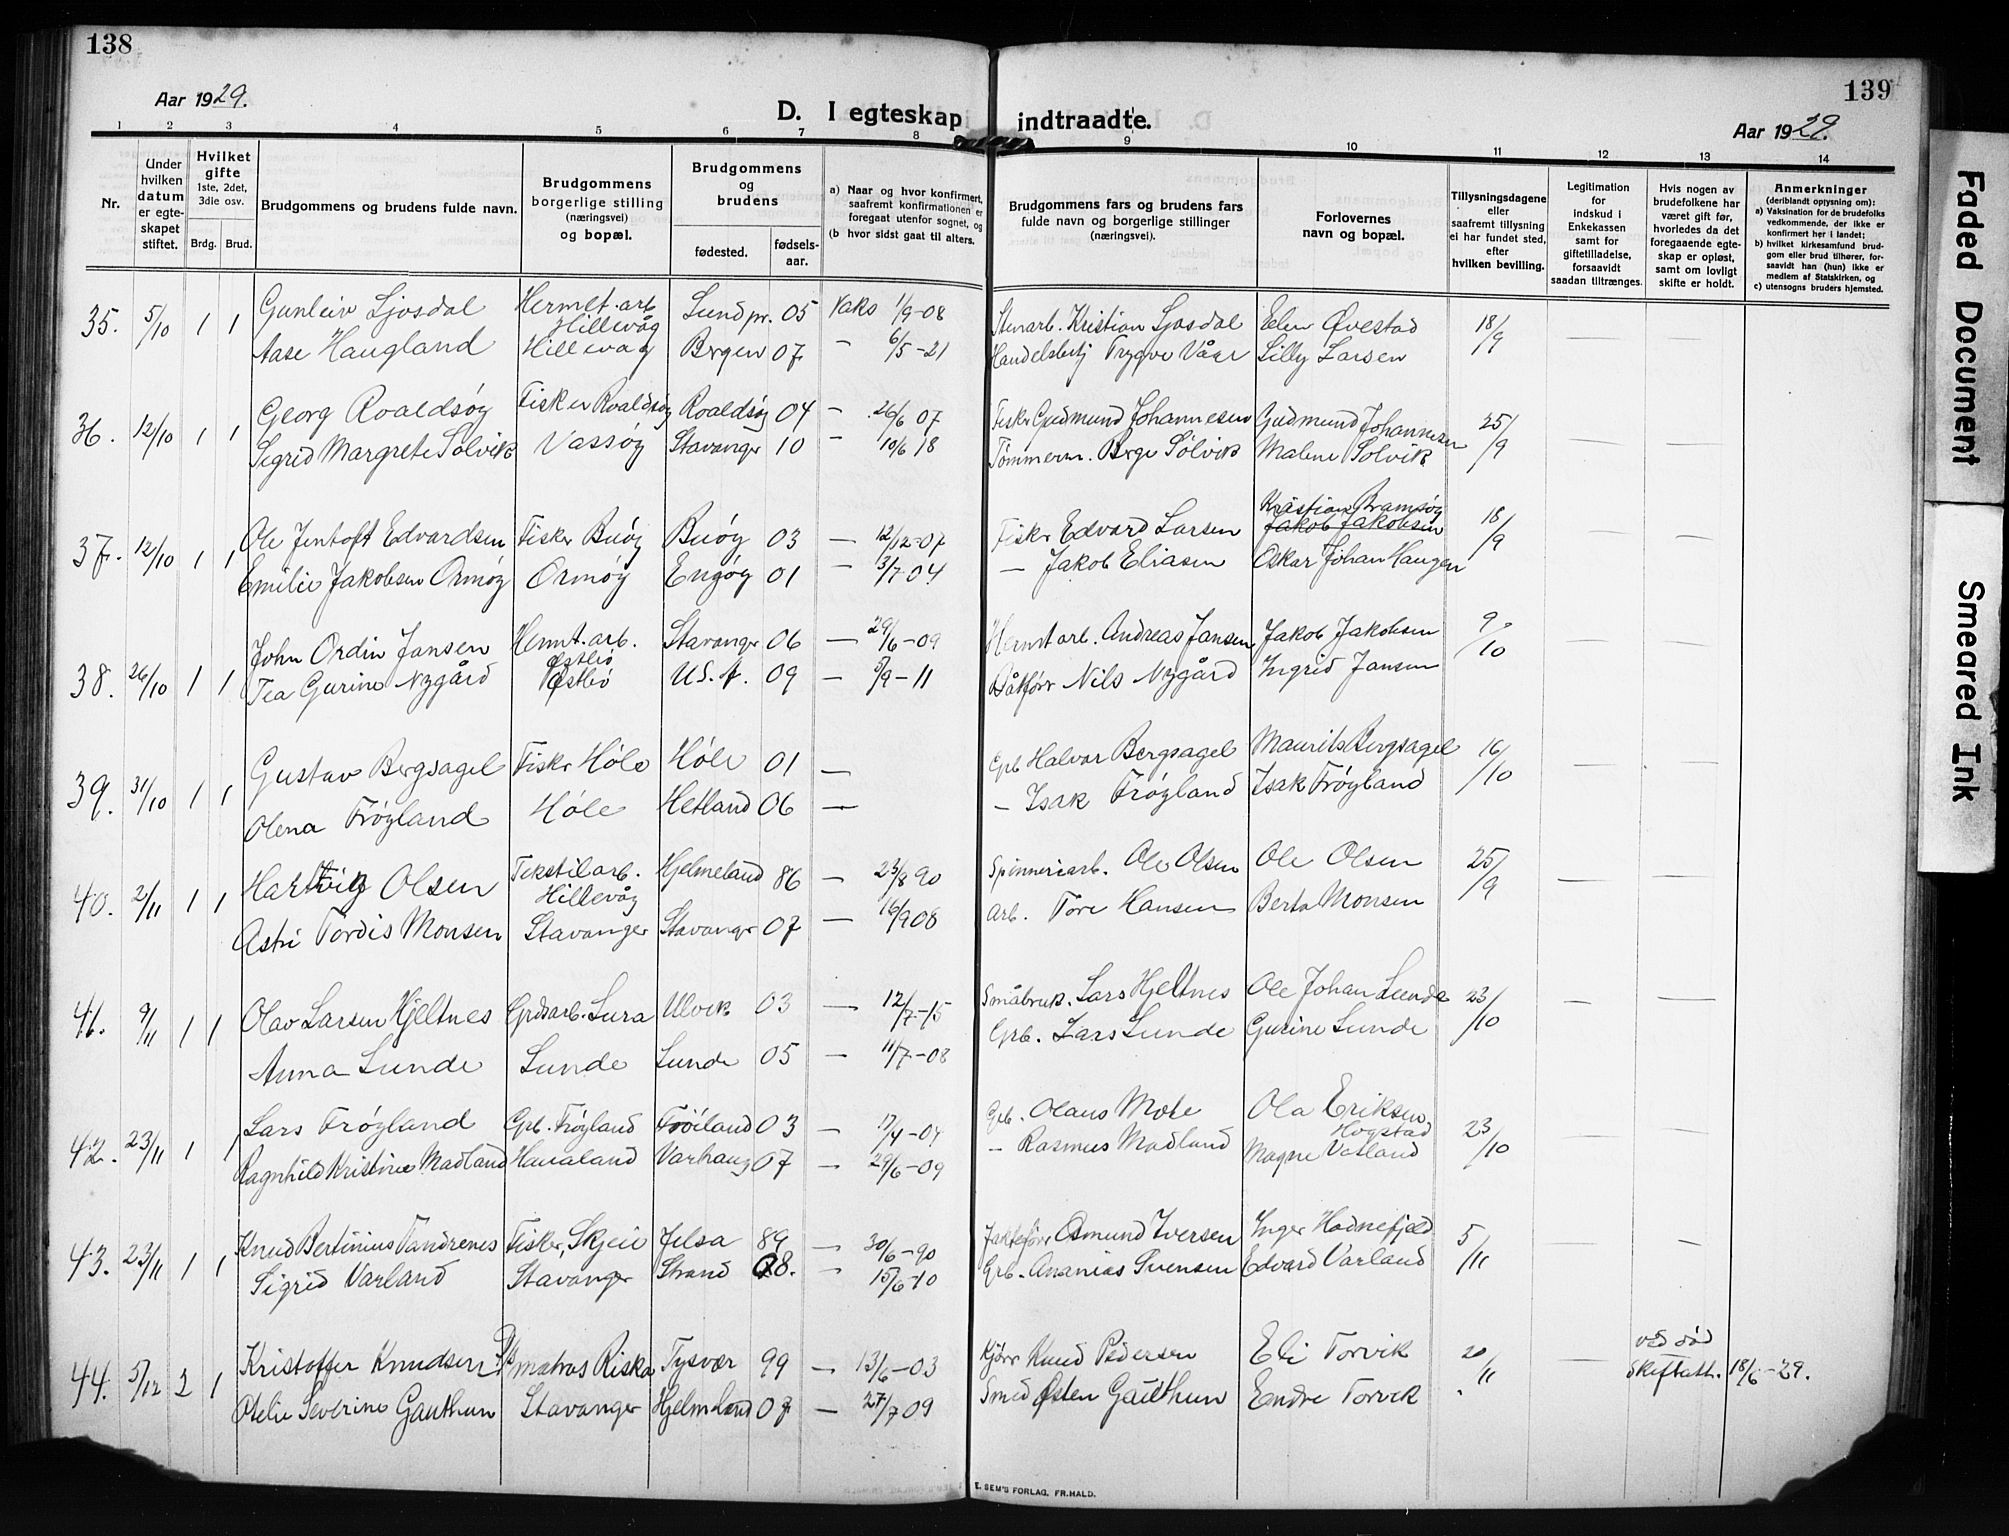 138
Aar 1929.
D. I egteskap
1 2 3 4 5 6 7 8
Nr.
Under hvilken datum er egte-skapet stiftet.
Hvilket gifte
1ste, 2det, 3die osv.
Brdg. Brud.
Brudgommens og brudens fulde navn.
Brudgommens borgerlige stilling (næringsvei) og bopæl.
Brudgommens og brudens
fødested. fødsels-aar.
a) Naar og hvor konfirmert, saafremt konfirmationen er foregaat utenfor sognet, og
(b hvor sidst gaat til alters.
35. 5/10 1 1 Gunleiv Ljosdal Hermet. arb. Hillevåg Lund pr. 05 Vaks 1/9-08
Aase Haugland Hillevåg Bergen 07 - 6/5-21
36. 12/10 1 1 Georg Roaldsøy Fisker Roaldsøy Roaldsøy 04 - 26/6 07
Sigrid Margrete Sølvik Vassøy Stavanger 10 - 10/6 18
37. 12/10 1 1 Ole Jentoft Edvardsen Fisker Buøy Buøy 03 - 12/12-07
Emilie Jakobsen Ormøy Ormøy Engøy 01 - 3/7-04
38. 26/10 1 1 John Ordin Jansen Hermt. arb. Østbø Stavanger 06 - 29/6-09
Tea Gurine Nygård Østbø U.S.A. 09 - 5/9-11
39. 31/10 1 1 Gustav Bergsagel Fisker Høle Høle 01 -
Olena Frøyland Høle Hetland 06 -
40. 2/11 1 1 Hartvig Olsen Tekstilarb. Hillevåg Hjelmeland 86 - 23/8 90
Astri Tordis Monsen Stavanger Stavanger 07 - 16/9 08
41. 9/11 1 1 Olav Larsen Hjeltnes Grdsarb. Lura Ulvik 03 - 12/7-15
Anna Lunde Lunde Lunde 05 - 11/7-08
42. 23/11 1 1 Lars Frøyland Grb. Frøyland Frøiland 03 - 17/4-04
Ragnhild Kristine Madland Hanaland Varhaug 07 - 29/6-09
43. 23/11 1 1 Knud Bertinius Tandrenes Fisker, Skjeie Jelsa 89 - 30/6-90
Sigrid Varland Stavanger Strand 98. - 15/6-10
44. 5/12 2 1 Kristoffer Knudsen matros Riska Tysvær 99 - 13/6-03
Otelie Severine Gauthun Stavanger Hjelmeland 07 - 27/7 09
139
indtraadte.
Aar 1929.
9 10 11 12 13 14
Brudgommens fars og brudens fars fulde navn og borgerlige stillinger (næringsvei).
Forlovernes navn og bopæl.
Tillysningsdagene eller saafremt tillysning ei har fundet sted, efter hvilken bevilling.
Legitimation for indskud i Enkekassen samt for giftetilladelse, forsaavidt saadan tiltrænges.
Hvis nogen av brudefolkene har været gift før, hvorledes da det foregaaende egte-skap er opløst, samt om lovligt skifte er holdt.
Anmerkninger
(deriblandt oplysning om):
a) Vaksination for de brudefolks vedkommende, der ikke er konfirmert her i landet;
b) hvilket kirkesamfund brud-gom eller brud tilhører, for-saavidt han (hun) ikke er medlem af Statskirken, og
c) utensogns bruders hjemsted.
Stenarb. Kristian Ljosdal Elen Øvestad 18/9 — —
Handelsbetj Trygve Våge Lilly Larsen
Fisker Gudmund Johannesen Gudmund Johannesen 25/9 — —
Tømmerm. Berge Sølvik Malene Sølvik
Fisker Edvard Larsen Kristian Bramsøy Jakob Jakobsen 18/9 — —
- Jakob Eliasen Oskar Johan Haugen
Hermt arb. Andreas Jansen Jakob Jakobsen 9/10 — —
Båtfører Nils Nygård Ingrid Jansen
Grb Halvar Bergsagel Maurits Bergsagel 16/10 — —
- Isak Frøyland Isak Frøyland
Spinneriarb. Ole Olsen Ole Olsen 25/9 — —
Arb. Tore Hansen Berta Monsen
Småbruk. Lars Hjeltnes Ole Johan Lunde 23/10 — —
Grb. Lars Lunde Gurine Lunde
Grb. Olaus Mote Ola Eriksen Hogstad 23/10 — —
- Rasmus Madland Magne Vatland
Jaktefører Osmund Iversen Inger Hodnefjeld 5/11 — —
Grb. Ananias Svensen Edvard Varland
Kjører Knud Pedersen Eli Torvik 20/11 — ved død
Smed Østen Gauthun Endre Torvik Skifteatt. 18/6-29.
E. SEM'S FORLAG, FR.HALD.
Faded Document
Smeared Ink